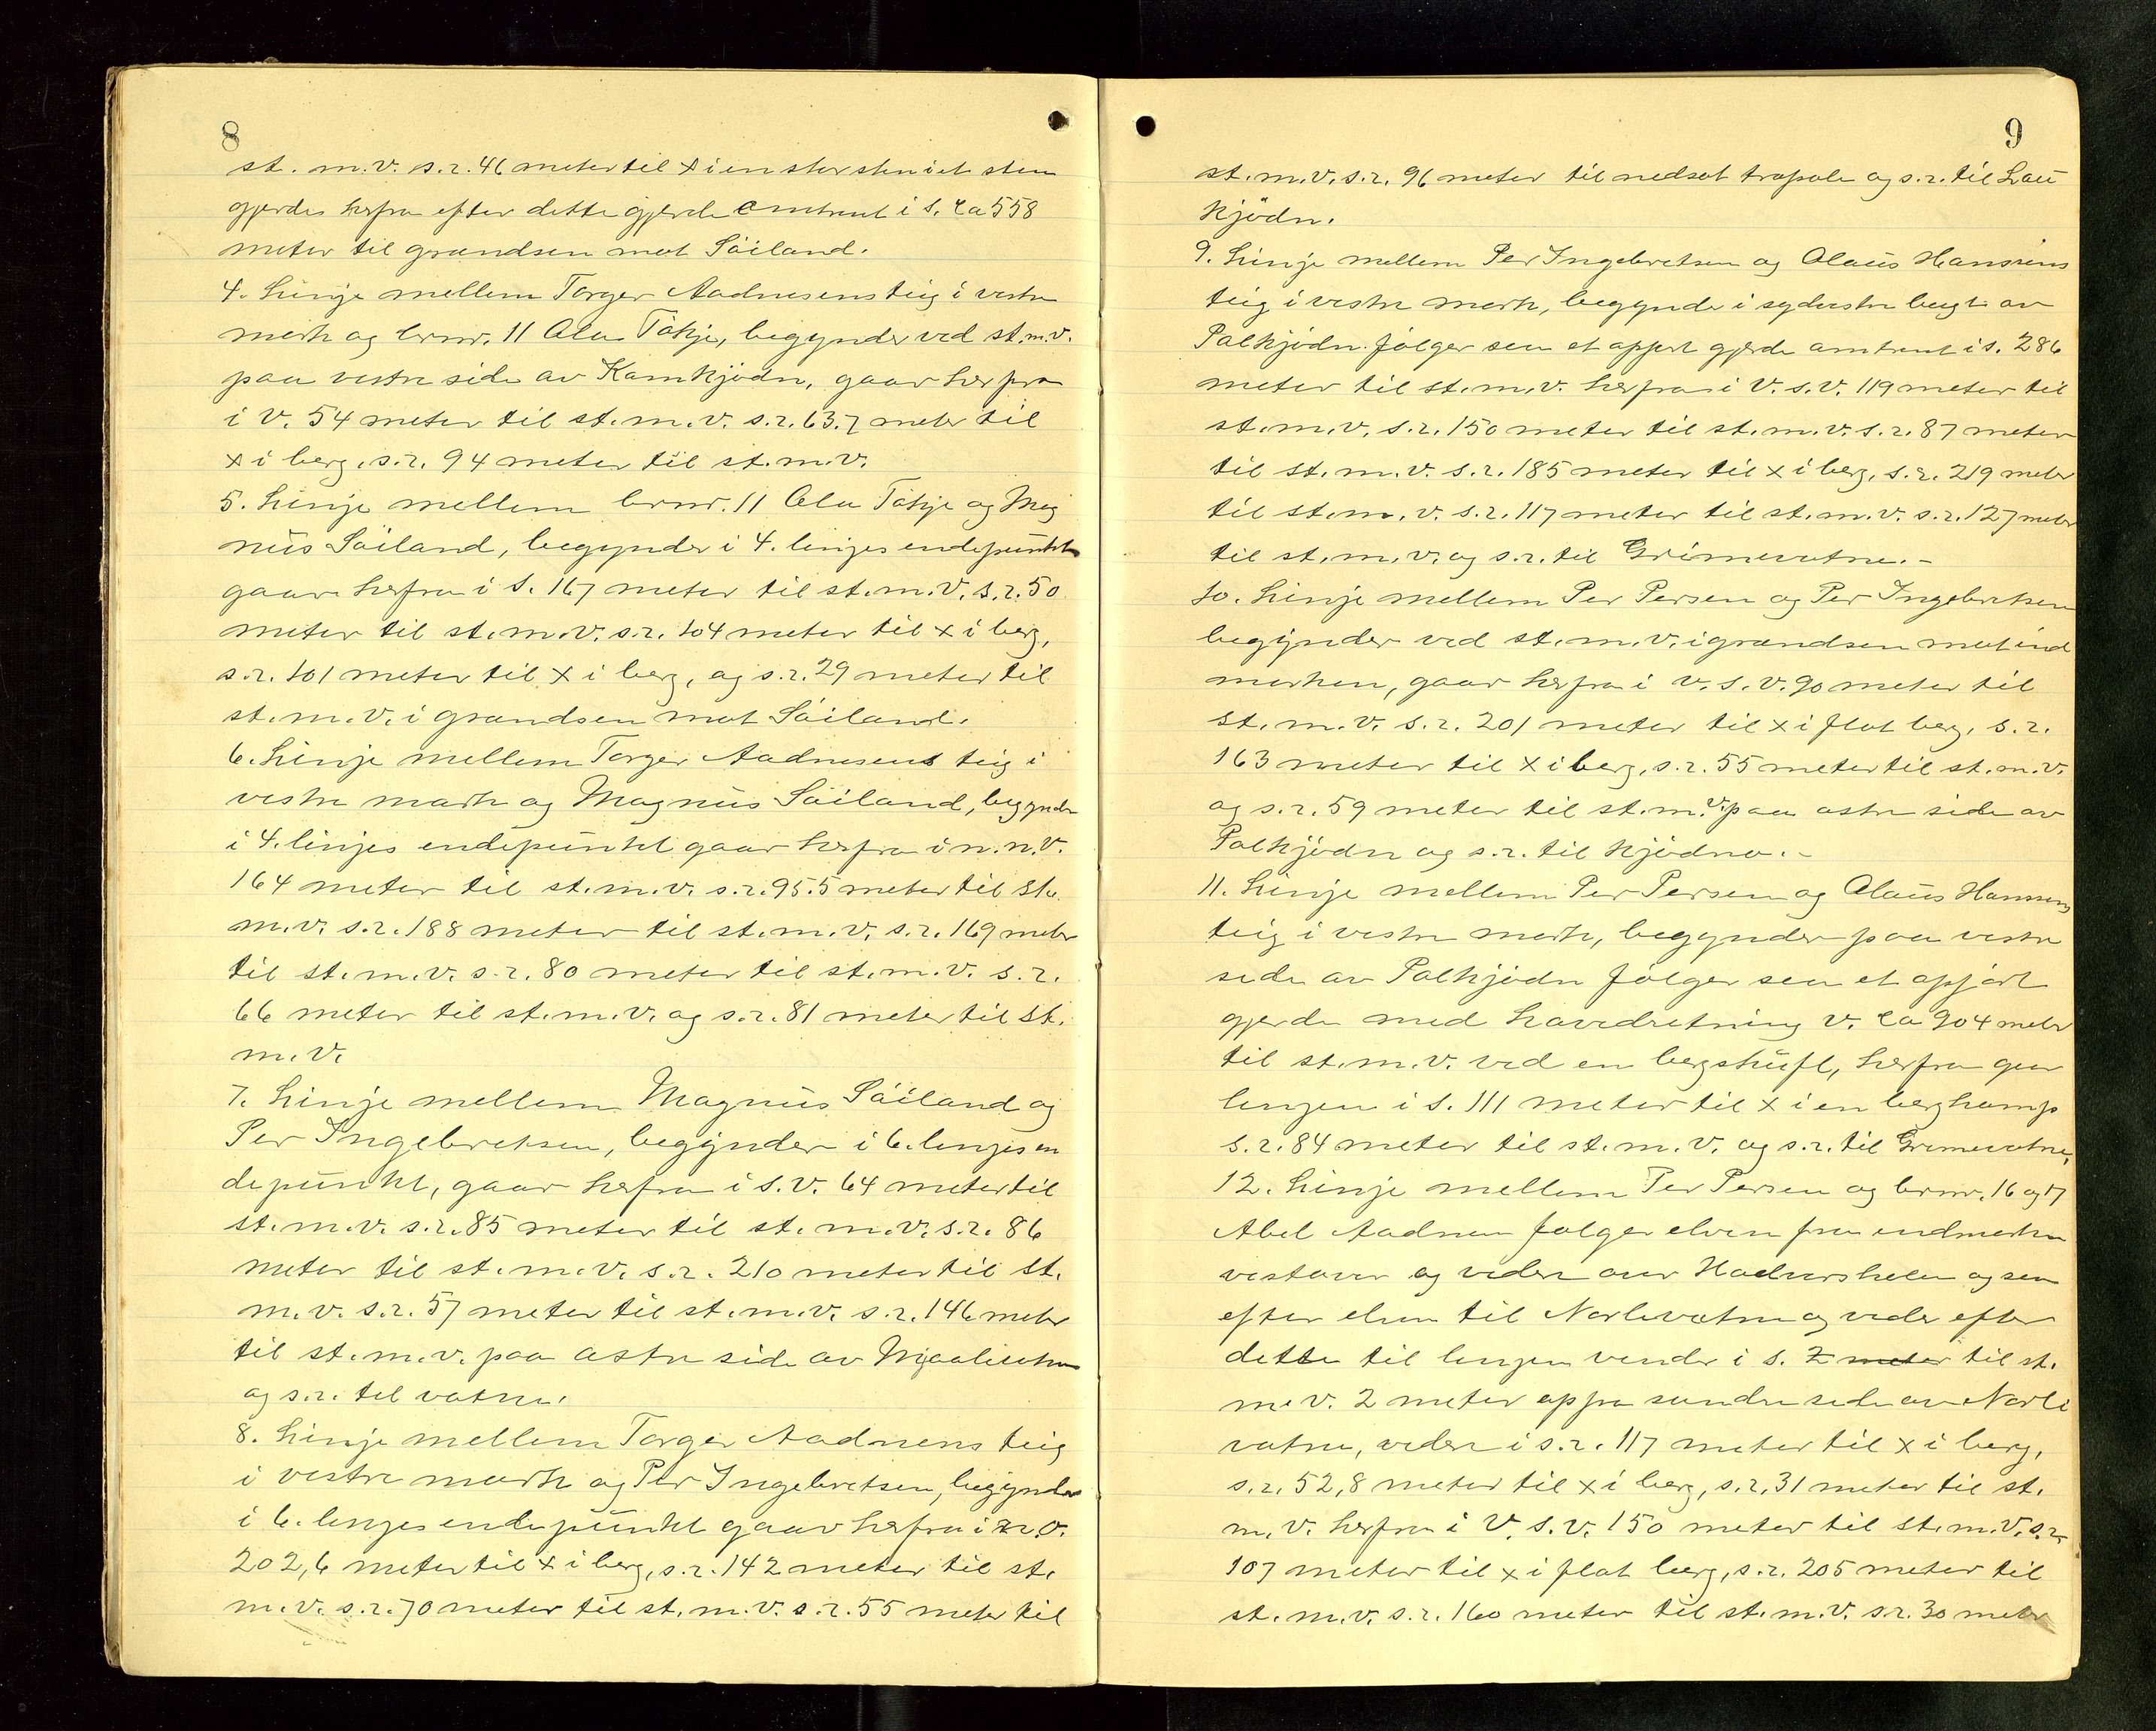 8
st. m. v. s. r. 46 meter til x i en stor sten i et sten
gjerde herfra efter dette gjerde omtrent i S. ca 558
meter til grændsen mot Söiland.
4. Linje mellem Torger Aadnesens teig i vestre
mark og brnr. 11 Ola Tökje, begynder ved st. m. v.
paa vestre side av Kamkjödn, gaar herfra
i V. 54 meter til st. m. v. s. r. 63.7 meter til
x i berg, s. r. 94 meter til st. m. v.
5. Linje mellem brnr. 11 Ola Tökje og Mag
nus Söiland, begynder i 4. linjes endepunkt
gaar herfra i S. 167 meter til st. m. v. s. r. 50
meter til st. m. v. s. r. 104 meter til x i berg,
s. r. 101 meter til x i berg, og s. r. 29 meter til
st. m. v. i grændsen mot Söiland.
6. Linje mellem Torger Aadnesens teig i
vestre mark og Magnus Söiland, begynder
i 4. linjes endepunkt gaar herfra i n. n. v.
164 meter til st. m. v. s. r. 95.5 meter til st.
m. v. s. r. 188 meter til st. m. v. s. r. 169 meter
til st. m. v. s. r. 80 meter til st. m. v. s. r.
66 meter til st. m. v. og s. r. 81 meter til st.
m. v.
7. Linje mellem Magnus Söiland og
Per Ingebretsen, begynder i 6. linjes en
depunkt, gaar herfra i S. V. 64 meter til
st. m. v. s. r. 85 meter til st. m. v. s. r. 86
meter til st. m. v. s. r. 210 meter til st.
m. v. s. r. 57 meter til st. m. v. s. r. 146 meter
til st. m. v. paa östre side av
og s. r. til vatne.
8. Linje mellem Torger Aadnesens teig
i vestre mark og Per Ingebretsen, begynder
i 6. linjes endepunkt gaar herfra i
202,6 meter til x i berg, s. r. 142 meter til st.
m. v. s. r. 70 meter til st. m. v. s. r. 55 meter til
9
st. m. v. s. r. 96 meter til nedsat træpæle og s. r. til Lau
kjödn.
9. Linje mellem Per Ingebretsen og Olaus Hansens
teig i vestre mark, begynder i syderste bugt av
Palkjödn følger sen et oppert gjerde omtrent i s. 286
meter til st. m. v. herfra i V. S. V. 119 meter til
st. m. v. s. r. 150 meter til st. m. v. s. r. 87 meter
til st. m. v. s. r. 185 meter til x i berg, s. r. 219 meter
til st. m. v. s. r. 117 meter til st. m. v. s. r. 127 meter
til st. m. v. og s. r. til Grimevatne. -
10. Linje mellem Per Persen og Per Ingebretsen
begynder ved st. m. v. i grændsen mot ind
marken, gaar herfra i V. S. V. 90 meter til
st. m. v. s. r. 201 meter til x i flot berg, s. r.
163 meter til x i berg, s. r. 55 meter til st. m. v.
og s. r. 59 meter til st. m. v. paa østre side av
Palkjödn og s. r. til kjödna. -
11. Linje mellem Per Persen og Olaus Hansens
teig i vestre mark, begynder paa vestre
side av Palkjödn følger sen et opført
gjerde med hovedretning V. ca 904 meter
til st. m. v. ved en bergskuft, herfra gaar
linjen i S. 111 meter til x i en berghamp
s. r. 84 meter til st. m. v. og s. r. til Grimevatne,
12. Linje mellem Per Persen og brnr. 16 og 17
Abel Aadnen følger elven fra indmarken
vestover og videre over og sen
efter elven til Norlivatne og vider efter
dette til linjen vender i S. 2 meter til st.
m. v. 2 meter op fra søndre side av Norli
vatne, videre i s. r. 117 meter til x i berg,
s. r. 52,8 meter til x i berg, s. r. 31 meter til st.
m. v. herfra i V. S. V. 150 meter til st. m. v. s. r.
107 meter til x i flat berg, s. r. 205 meter til
st. m. v. s. r. 160 meter til st. m. v. s. r. 30 meter